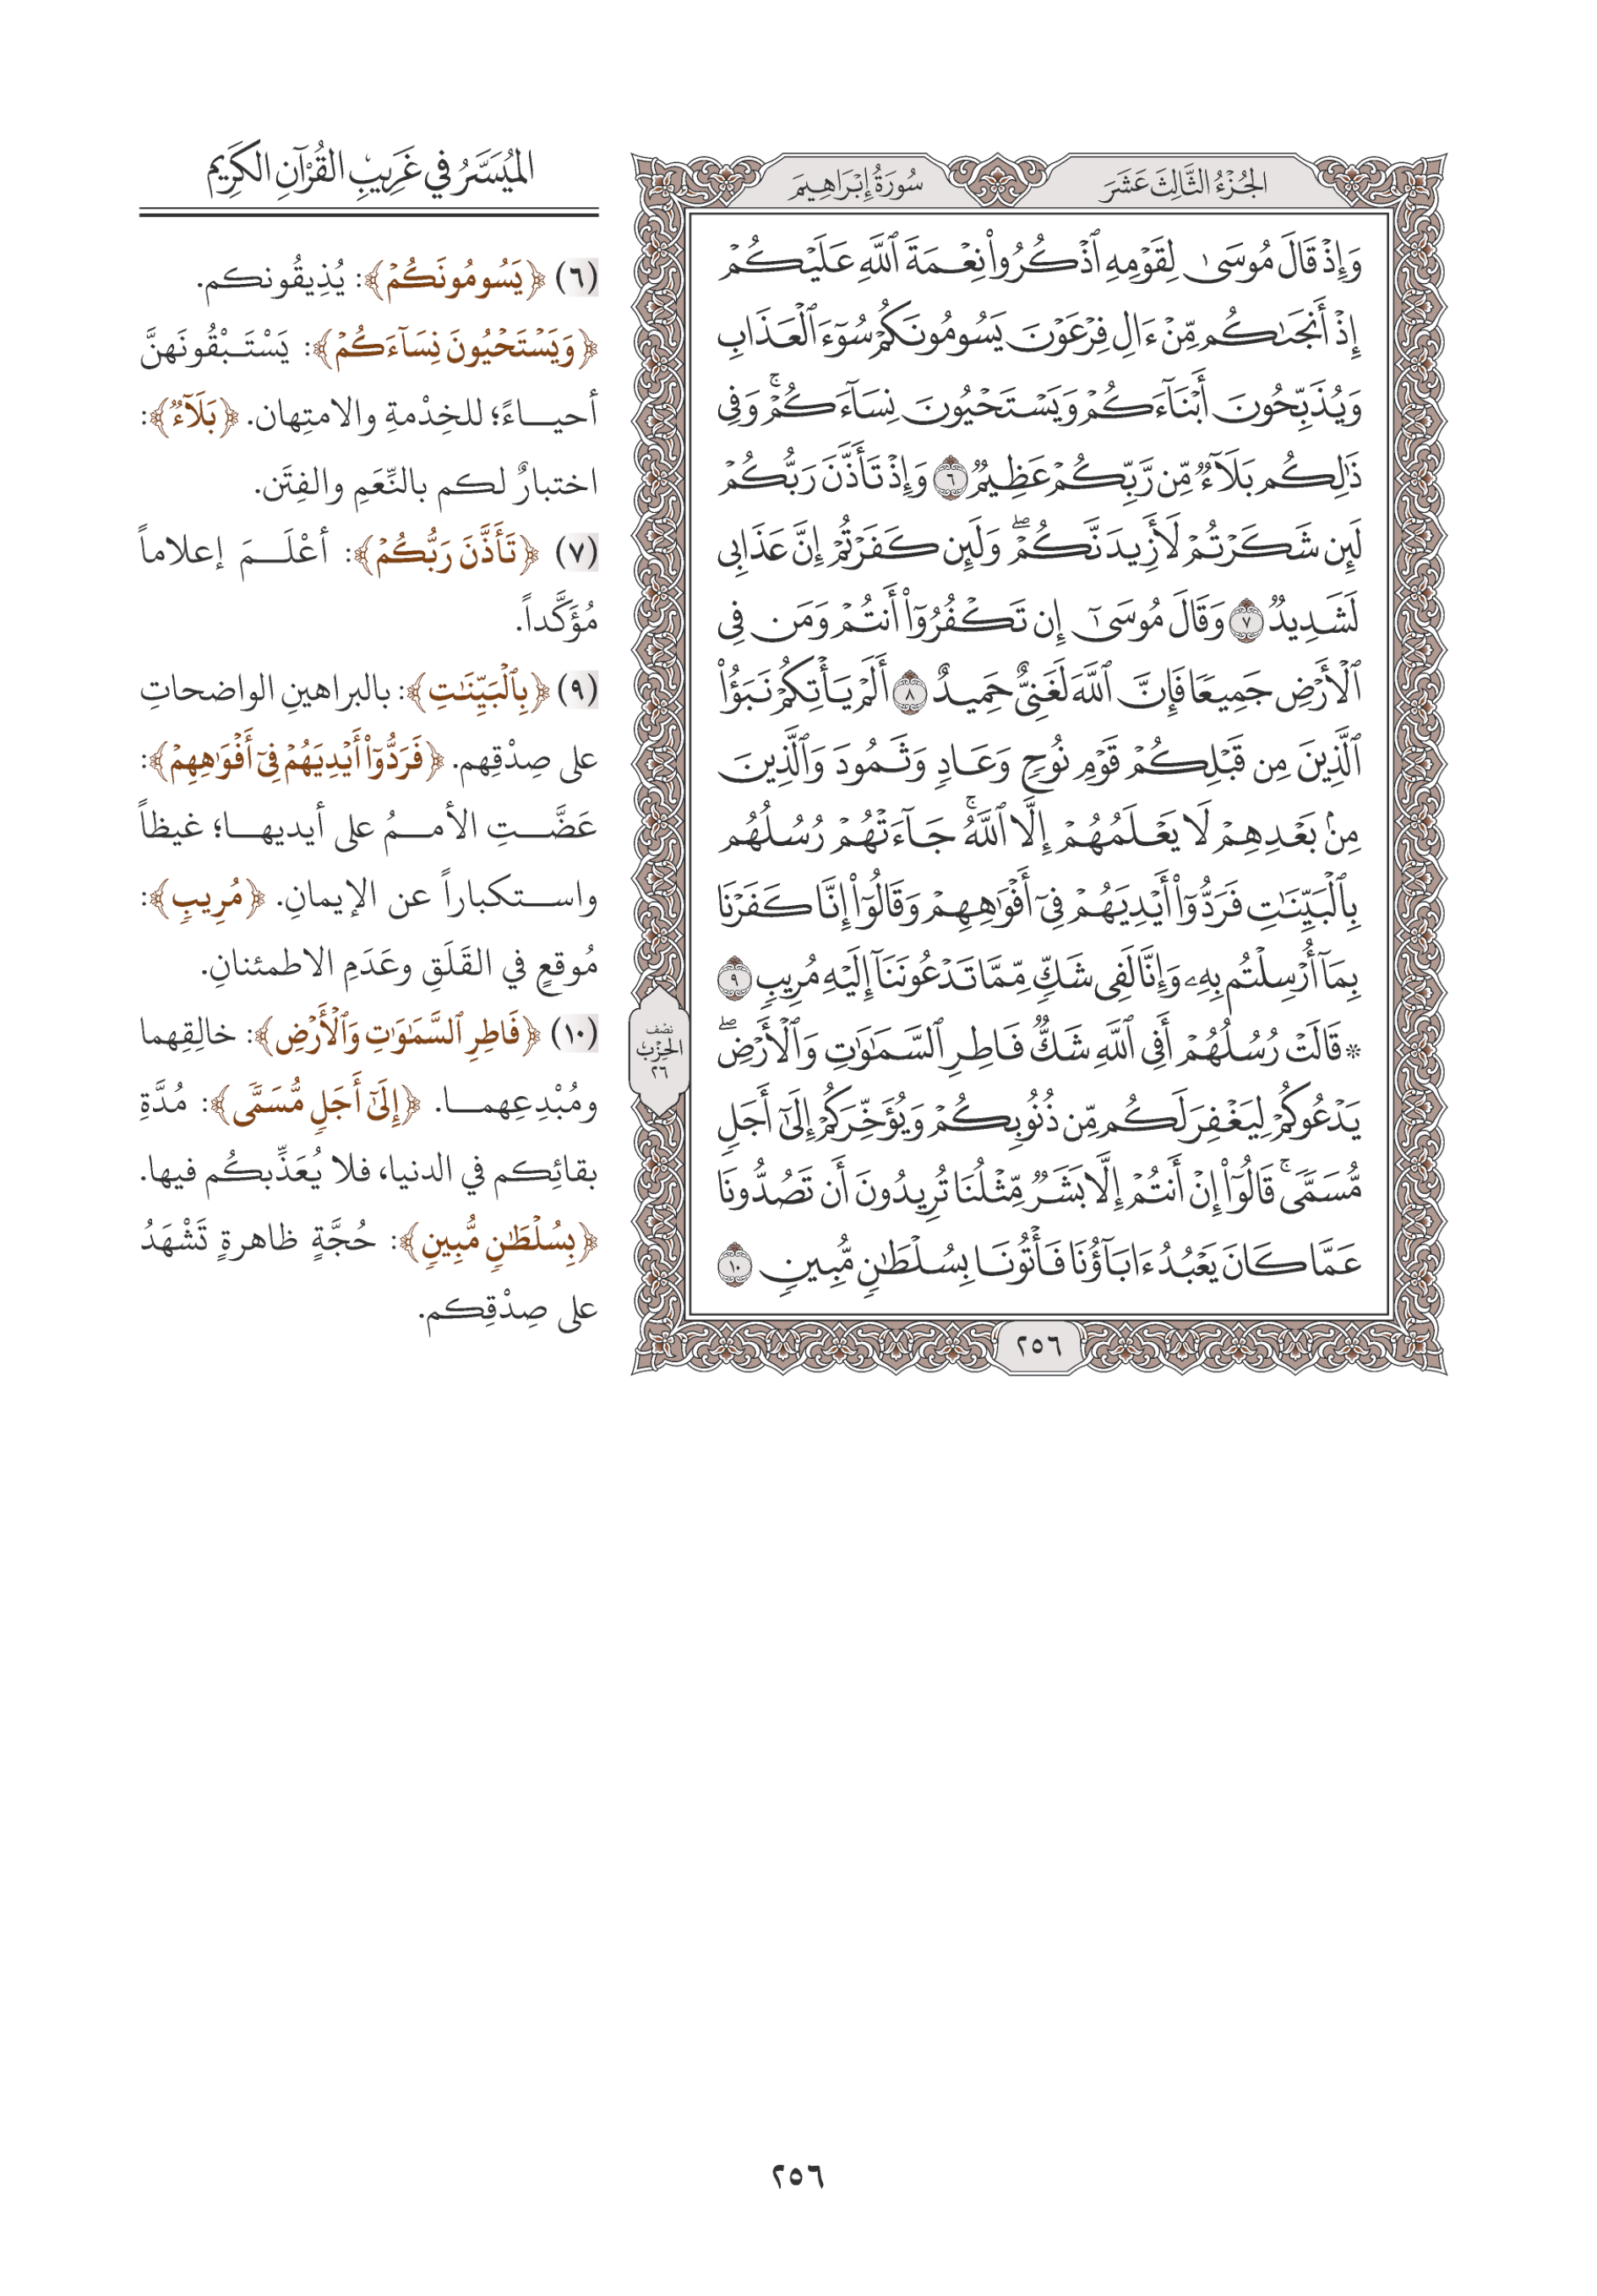 الجُزْءُ الثَّالِثَ عَشَرَ
سُورَةُ إِبْرَاهِيمَ
وَإِذۡ قَالَ مُوسَىٰ لِقَوۡمِهِ ٱذۡكُرُواْ نِعۡمَةَ ٱللَّهِ عَلَيۡكُمۡ
إِذۡ أَنجَىٰكُم مِّنۡ ءَالِ فِرۡعَوۡنَ يَسُومُونَكُمۡ سُوٓءَ ٱلۡعَذَابِ
وَيُذَبِّحُونَ أَبۡنَآءَكُمۡ وَيَسۡتَحۡيُونَ نِسَآءَكُمۡۚ وَفِي
ذَٰلِكُم بَلَآءٞ مِّن رَّبِّكُمۡ عَظِيمٞ ٦ وَإِذۡ تَأَذَّنَ رَبُّكُمۡ
لَئِن شَكَرۡتُمۡ لَأَزِيدَنَّكُمۡۖ وَلَئِن كَفَرۡتُمۡ إِنَّ عَذَابِي
لَشَدِيدٞ ٧ وَقَالَ مُوسَىٰٓ إِن تَكۡفُرُوٓاْ أَنتُمۡ وَمَن فِي
ٱلۡأَرۡضِ جَمِيعٗا فَإِنَّ ٱللَّهَ لَغَنِيٌّ حَمِيدٌ ٨ أَلَمۡ يَأۡتِكُمۡ نَبَؤُاْ
ٱلَّذِينَ مِن قَبۡلِكُمۡ قَوۡمِ نُوحٖ وَعَادٖ وَثَمُودَ وَٱلَّذِينَ
مِنۢ بَعۡدِهِمۡ لَا يَعۡلَمُهُمۡ إِلَّا ٱللَّهُۚ جَآءَتۡهُمۡ رُسُلُهُم
بِٱلۡبَيِّنَٰتِ فَرَدُّوٓاْ أَيۡدِيَهُمۡ فِيٓ أَفۡوَٰهِهِمۡ وَقَالُوٓاْ إِنَّا كَفَرۡنَا
بِمَآ أُرۡسِلۡتُم بِهِۦ وَإِنَّا لَفِي شَكّٖ مِّمَّا تَدۡعُونَنَآ إِلَيۡهِ مُرِيبٖ ٩
۞ قَالَتۡ رُسُلُهُمۡ أَفِي ٱللَّهِ شَكّٞ فَاطِرِ ٱلسَّمَٰوَٰتِ وَٱلۡأَرۡضِۖ
يَدۡعُوكُمۡ لِيَغۡفِرَ لَكُم مِّن ذُنُوبِكُمۡ وَيُؤَخِّرَكُمۡ إِلَىٰٓ أَجَلٖ
مُّسَمّٗىۚ قَالُوٓاْ إِنۡ أَنتُمۡ إِلَّا بَشَرٞ مِّثۡلُنَا تُرِيدُونَ أَن تَصُدُّونَا
عَمَّا كَانَ يَعۡبُدُ ءَابَآؤُنَا فَأۡتُونَا بِسُلۡطَٰنٖ مُّبِينٖ ١٠
نصف
الحزب
٢٦
٢٥٦
المُيَسَّرُ في غَرِيبِ القُرْآنِ الكَرِيم
(٦) ﴿يَسُومُونَكُمۡ﴾: يُذِيقُونكم.
﴿وَيَسۡتَحۡيُونَ نِسَآءَكُمۡ﴾: يَسْتَبْقُونَهنَّ
أحياءً؛ للخِدْمةِ والامتِهان. ﴿بَلَآءٞ﴾:
اختبارٌ لكم بالنِّعَمِ والفِتَن.
(٧) ﴿تَأَذَّنَ رَبُّكُمۡ﴾: أعْلَمَ إعلاماً
مُؤَكَّداً.
(٩) ﴿بِٱلۡبَيِّنَٰتِ﴾: بالبراهينِ الواضحاتِ
على صِدْقِهم. ﴿فَرَدُّوٓاْ أَيۡدِيَهُمۡ فِيٓ أَفۡوَٰهِهِمۡ﴾:
عَضَّتِ الأممُ على أيديها؛ غيظاً
واستكباراً عن الإيمانِ. ﴿مُرِيبٖ﴾:
مُوقعٍ في القَلَقِ وعَدَمِ الاطمئنانِ.
(١٠) ﴿فَاطِرِ ٱلسَّمَٰوَٰتِ وَٱلۡأَرۡضِ﴾: خالِقِهما
ومُبْدِعِهما. ﴿إِلَىٰٓ أَجَلٖ مُّسَمّٗى﴾: مُدَّةِ
بقائِكم في الدنيا، فلا يُعَذِّبكُم فيها.
﴿بِسُلۡطَٰنٖ مُّبِينٖ﴾: حُجَّةٍ ظاهرةٍ تَشْهَدُ
على صِدْقِكم.
٢٥٦